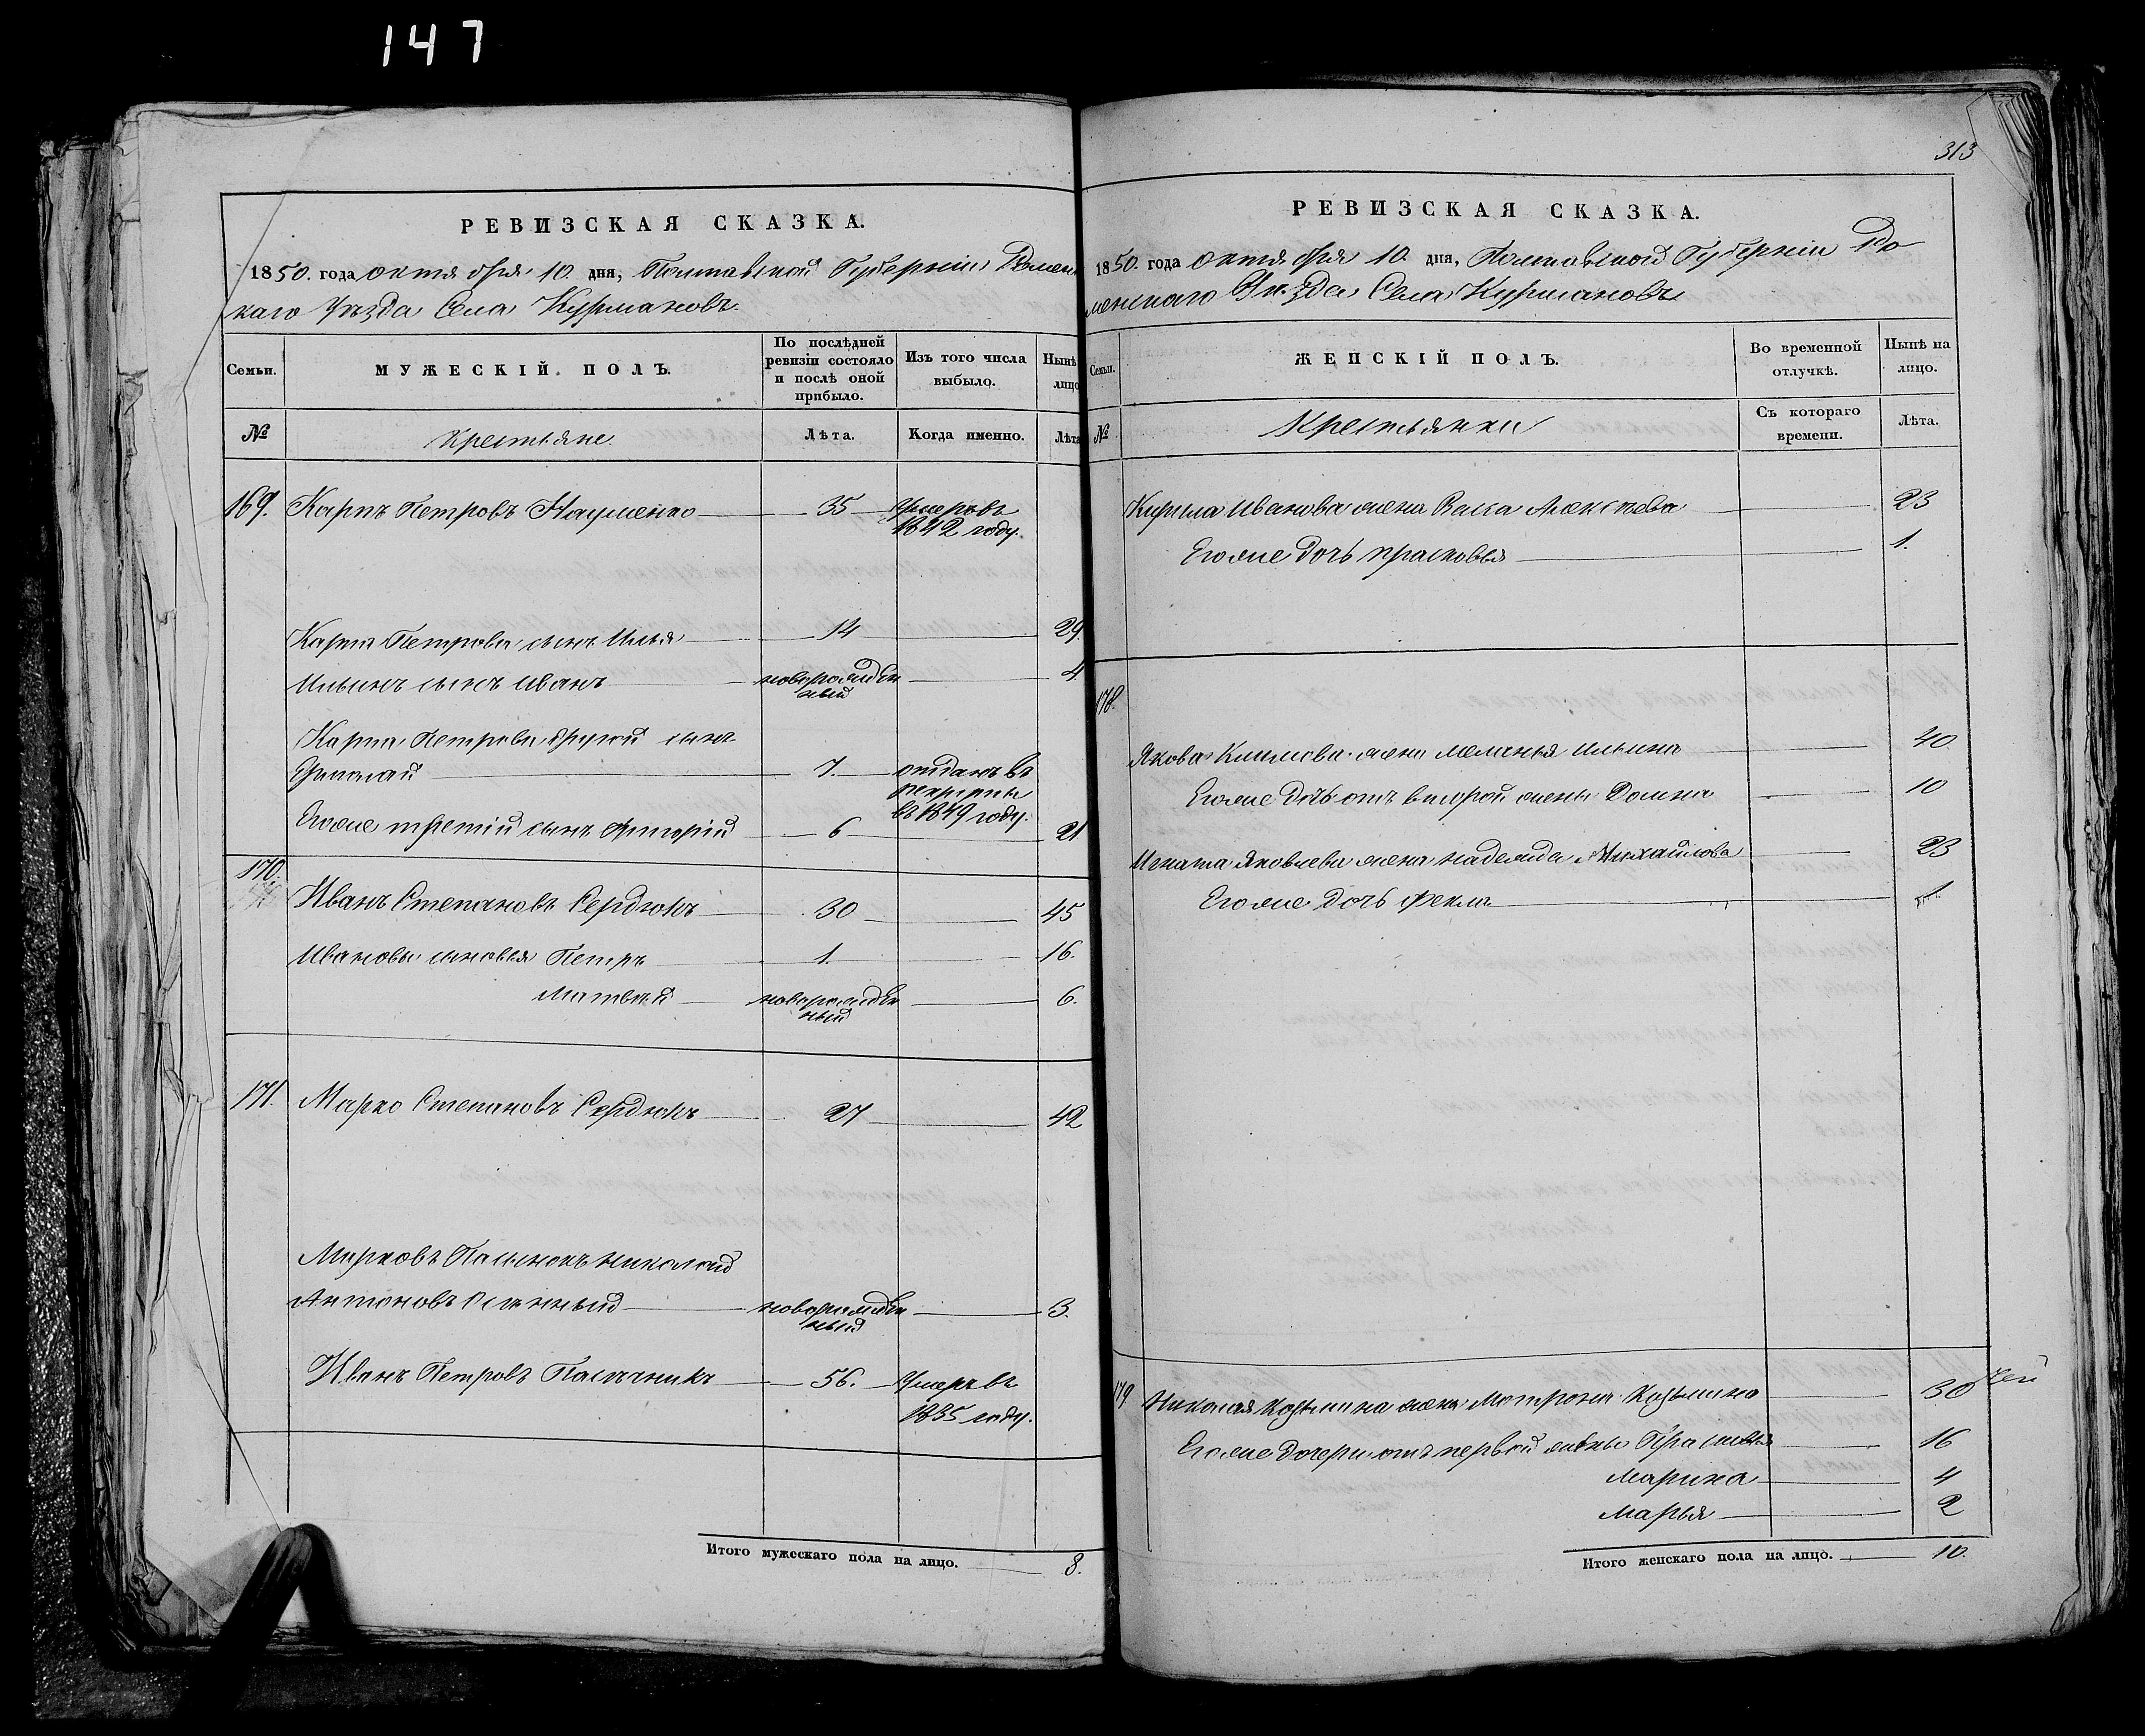 147
РЕВИЗСКАЯ СКАЗКА.
1850. года октября 10. дня, Полтавской Губерніи Роменс
каго Уѣзда Села Курмановъ.
Семьи.
МУЖЕСКІЙ ПОЛЪ.
По послѣдней
ревизіи состояло
и послѣ оной
прибыло.
Изъ того числа
выбыло.
Нынѣ
лицо
№
Крестьяне
Лѣта.
Когда именно.
Лѣта
169. Карпъ Петровъ Науменко 35 Умеръ въ
1842 году.
Карпа Петрова сынъ Илья 14 29.
Ильинъ сынъ Иванъ новорожден 4.
ный
Карпа Петрова другой сынъ
Ермолай 7. отданъ въ
рекруты
въ 1849 году.
Егоже третій сынъ Григорій 6 21
170.
Иванъ Степановъ Сердюкъ 30 45
Ивановы сыновья Петръ 1. 16.
Матвѣй новорожден 6.
ный
171. Марко Степановъ Сердюкъ 27 42
Марковъ Пасынокъ Николай
Антоновъ новорожден 3.
ный
Иванъ Петровъ Пасѣчникъ 56. Умеръ въ
1835 году.
Итого мужескаго пола на лицо. 8.
313
РЕВИЗСКАЯ СКАЗКА.
1850. года октября 10. дня, Полтавской Губерніи Ро
менскаго Уѣзда Села Курмановъ
Семьи.
ЖЕНСКІЙ ПОЛЪ.
Во временной
отлучкѣ.
Нынѣ на
лицо.
№
Крестьянки
Съ котораго
времени.
Лѣта.
Кирила Иванова жена Васса Алексѣева 23
Егоже дочь Прасковья 1.
178.
Якова Климова жена Меланья Ильина 40
Егоже дочь отъ второй жены Домна 10
Игната Яковлева жена Надежда Михайлова 23
Егоже дочь Фекла 1.
179 Николая Козьмина жена Матрона Козьмина 30
Егоже дочери отъ первой жены Прасковья 16
Марина 4
Марья 2
Итого женскаго пола на лицо. 10.